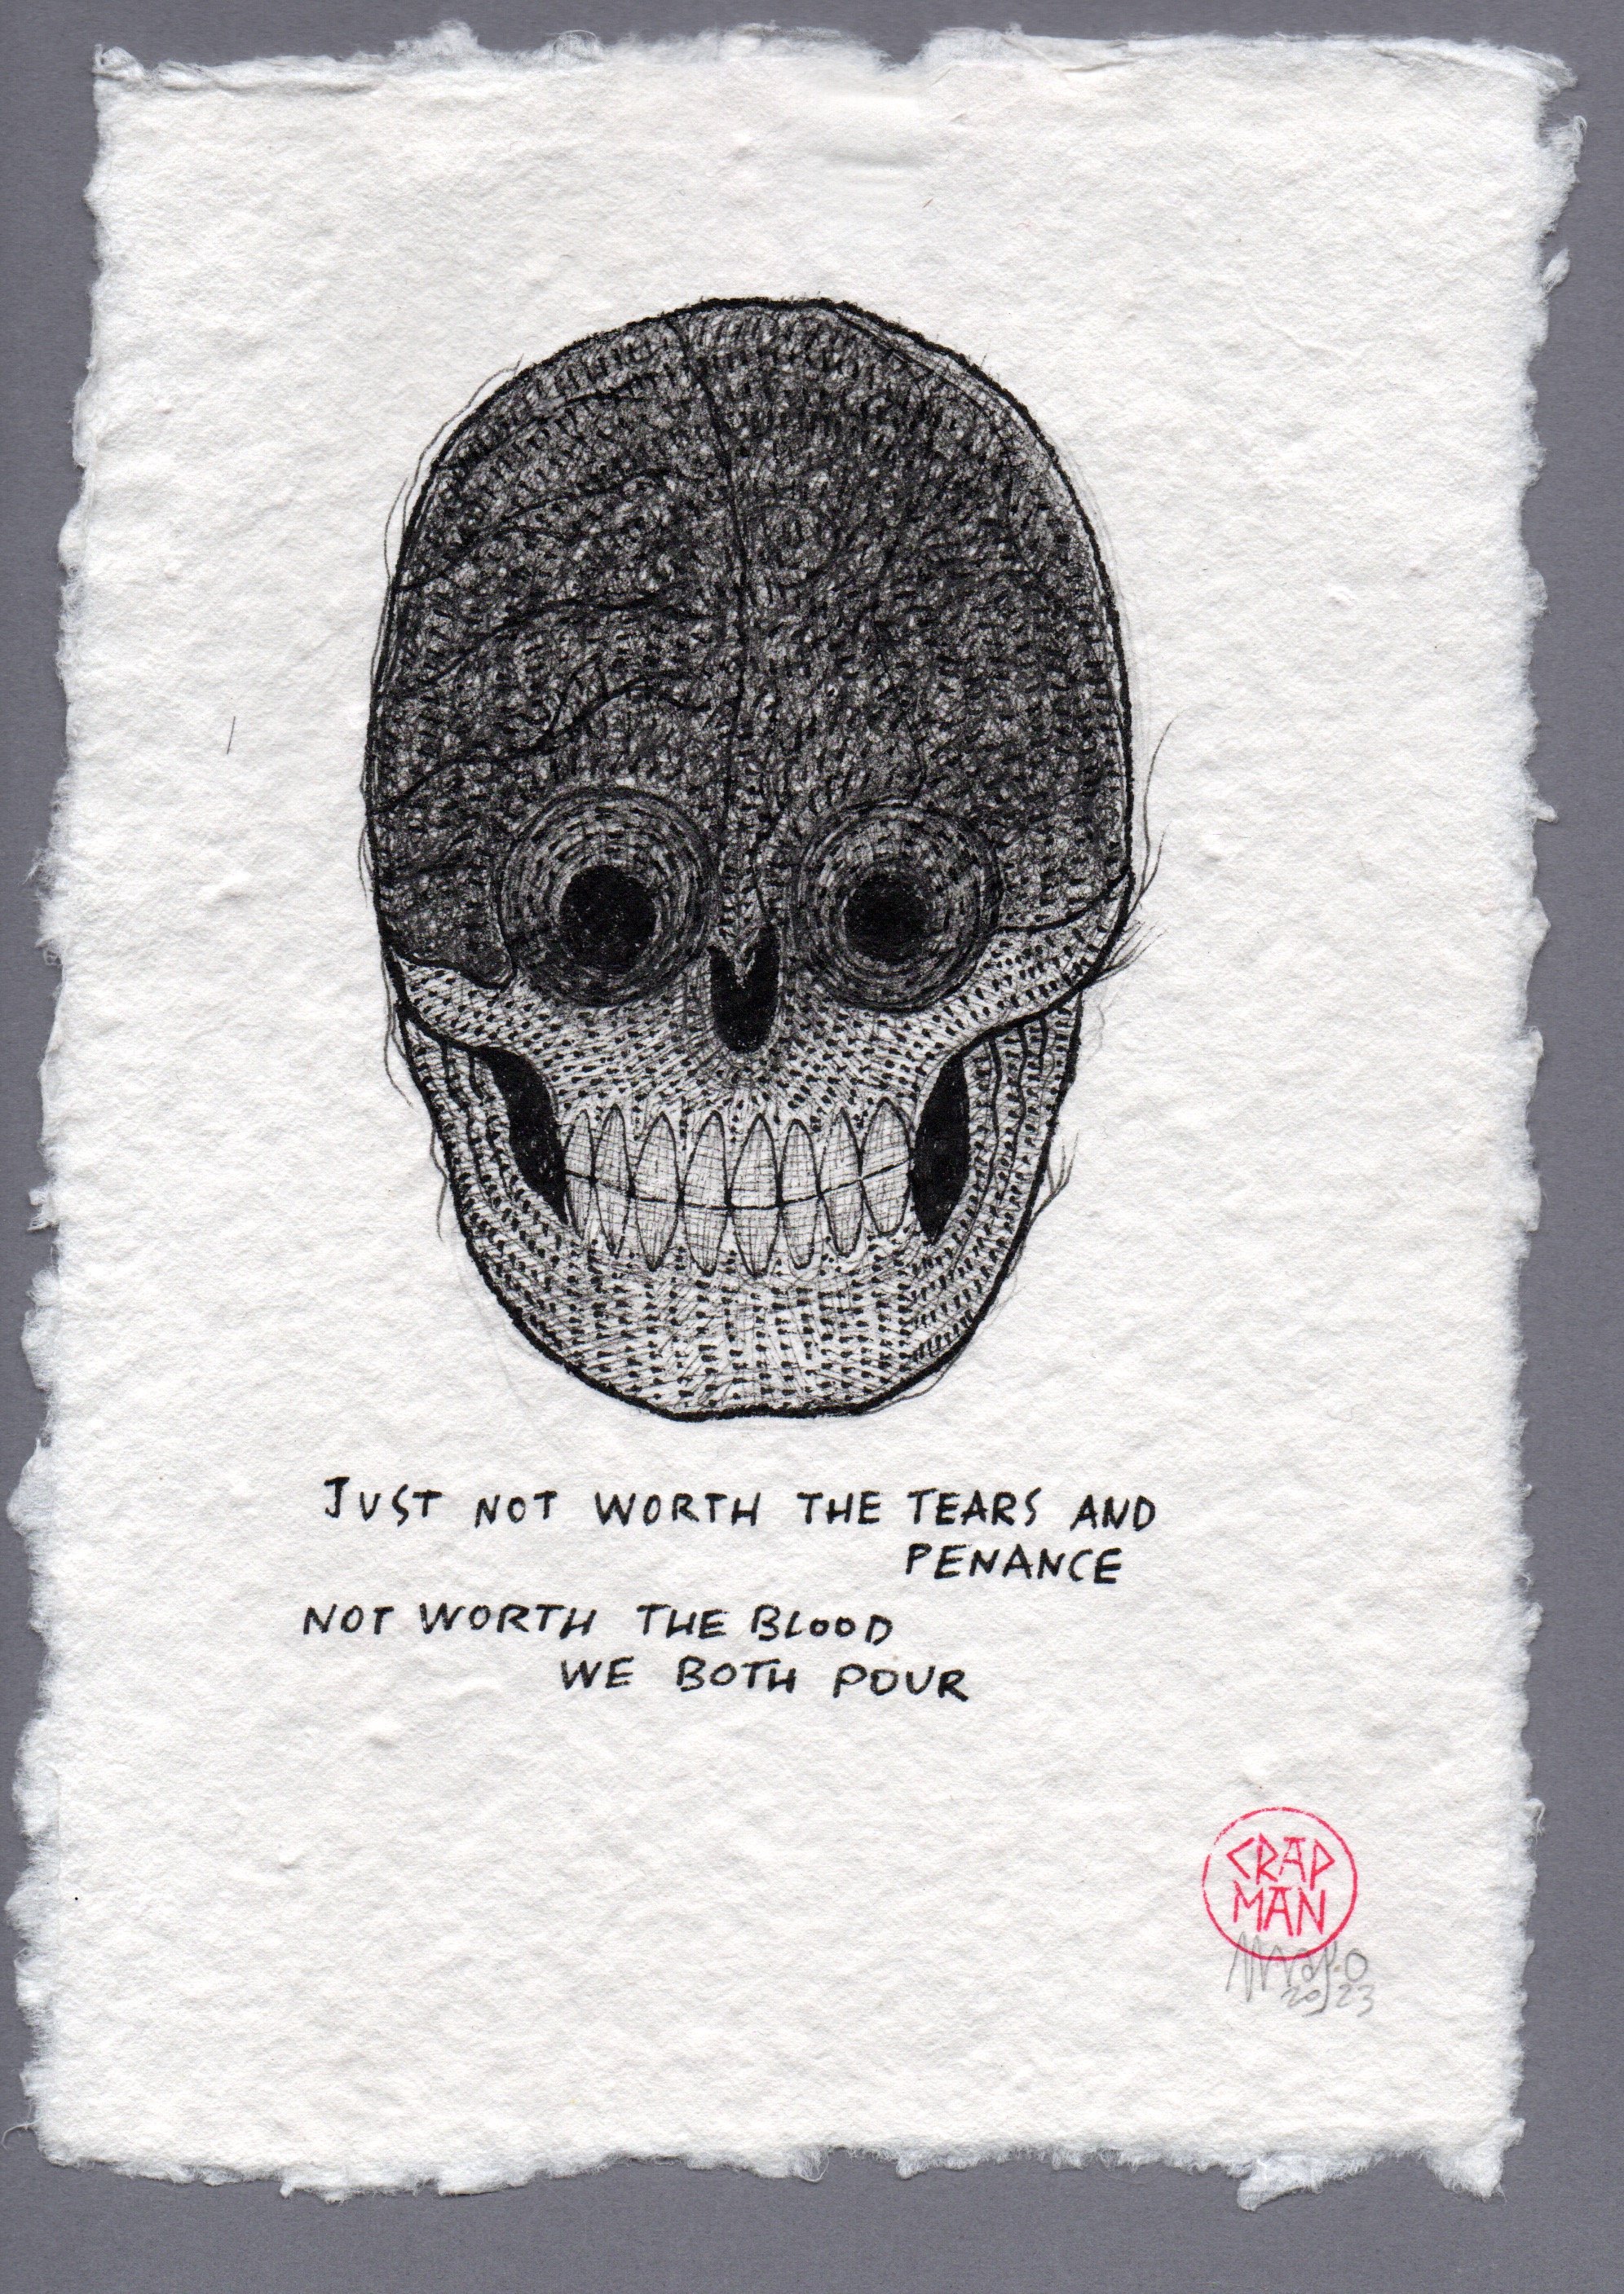 JUST NOT WORTH THE TEARS AND
PENANCE
NOT WORTH THE BLOOD
WE BOTH POUR
CRAP
MAN
2023